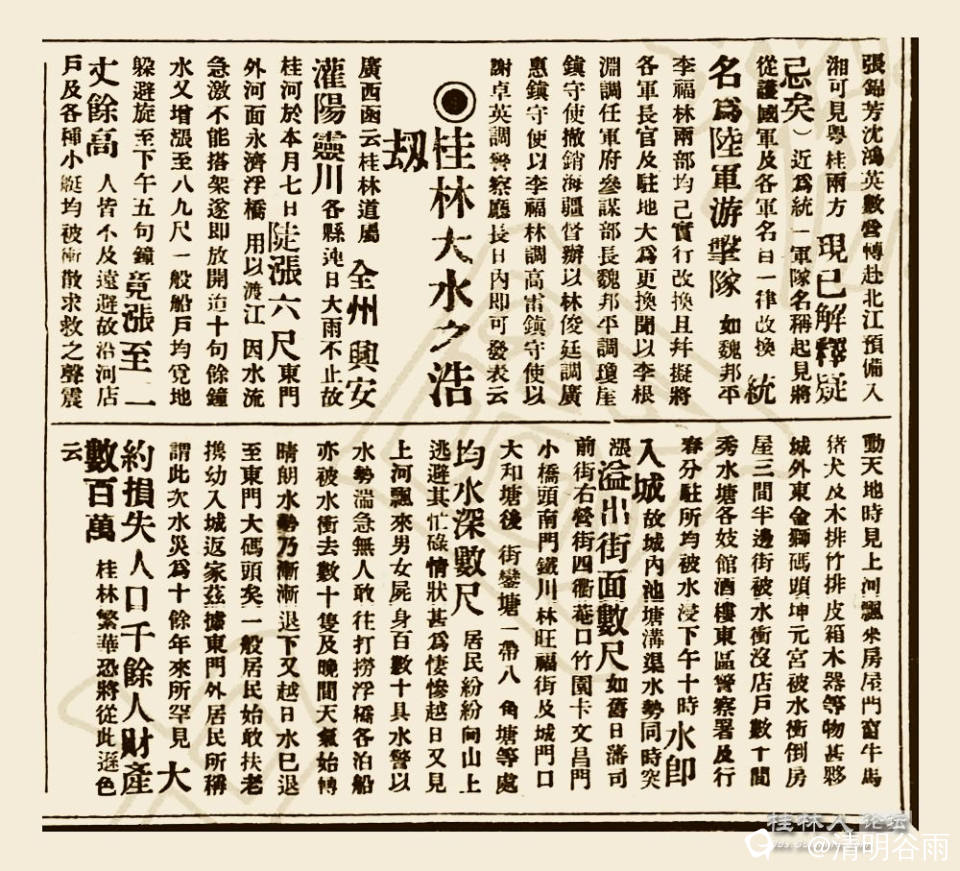 張錦芳沈鴻英數營轉赴北江預備入
湘可見粵桂兩方現已解釋疑
忌矣）近爲統一軍隊名稱起見將
從護國軍及各軍名目一律改換統
名爲陸軍游擊隊如魏邦平
李福林兩部均已實行改換且幷擬將
各軍長官及駐地大爲更換聞以李根
淵調任軍府參謀部長魏邦平調瓊崖
鎮守使撤銷海疆督辦以林俊廷調廣
惠鎮守使以李福林調高雷鎮守使以
謝卓英調警察廳長日內即可發表云
◉桂林大水之浩
劫
廣西函云桂林道屬全州興安
灌陽靈川各縣連日大雨不止故
桂河於本月七日陡漲六尺東門
外河面永濟浮橋用以渡江因水流
急激不能搭架遂即放開迨十句餘鐘
水又增漲至八九尺一般船戶均覓地
躲避旋至下午五句鐘竟漲至二
丈餘高人皆不及遠避故沿河店
戶及各種小艇均被衝散求救之聲震
動天地時見上河飄來房屋門窗牛馬
猪犬及木排竹排皮箱木器等物甚夥
城外東金獅碼頭坤元宮被水衝倒房
屋三間半邊街被水衝沒店戶數十間
秀水塘各妓館酒樓東區警察署及行
春分駐所均被水浸下午十時水卽
入城故城內池塘溝渠水勢同時突
漲溢出街面數尺如舊日藩司
前街右營街四衢菴口竹園卡文昌門
小橋頭南門鐵川林旺福街及城門口
大和塘後街鑾塘一帶八角塘等處
均水深數尺居民紛紛向山上
逃避其忙碌情狀甚爲悽慘越日又見
上河飄來男女屍身百數十具水警以
水勢湍急無人敢往打撈浮橋各泊船
亦被水衝去數十隻及晚間天氣始轉
晴朗水勢乃漸漸退下又越日水已退
至東門大碼頭矣一般居民始敢扶老
携幼入城返家茲據東門外居民所稱
謂此次水災爲十餘年來所罕見大
約損失人口千餘人財產
數百萬桂林繁華恐將從此遜色
云
桂林人论坛
@清明谷雨